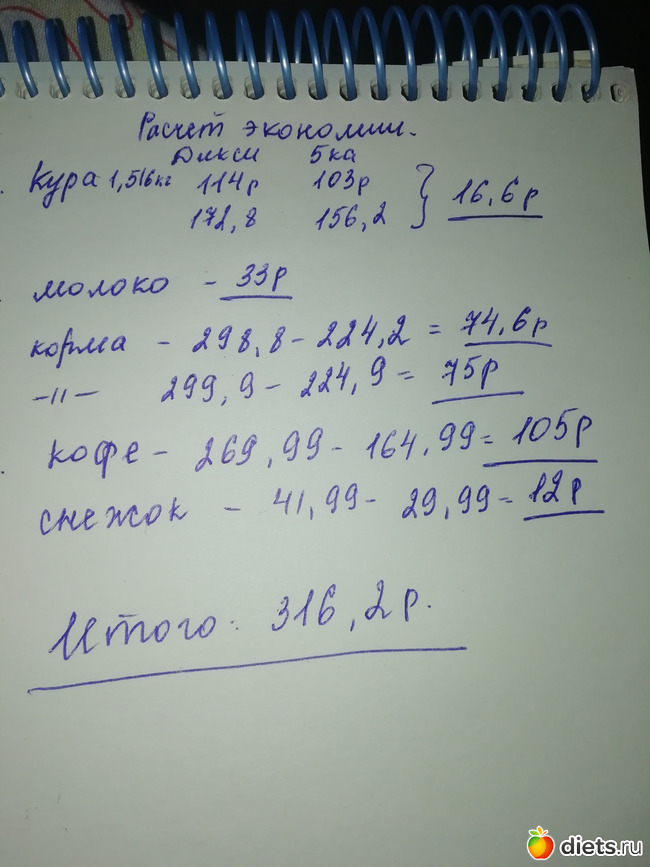 Расчет экономии.
Дикси 5ка
Кура 1,516кг 114р 103р
172,8 156,2 } 16,6р
молоко - 33р
корма - 298,8 - 224,2 = 74,6р
-11- 299,9 - 224,9 = 75р
кофе - 269,99 - 164,99 = 105р
снежок - 41,99 - 29,99 = 12р
Итого: 316,2р.
diets.ru